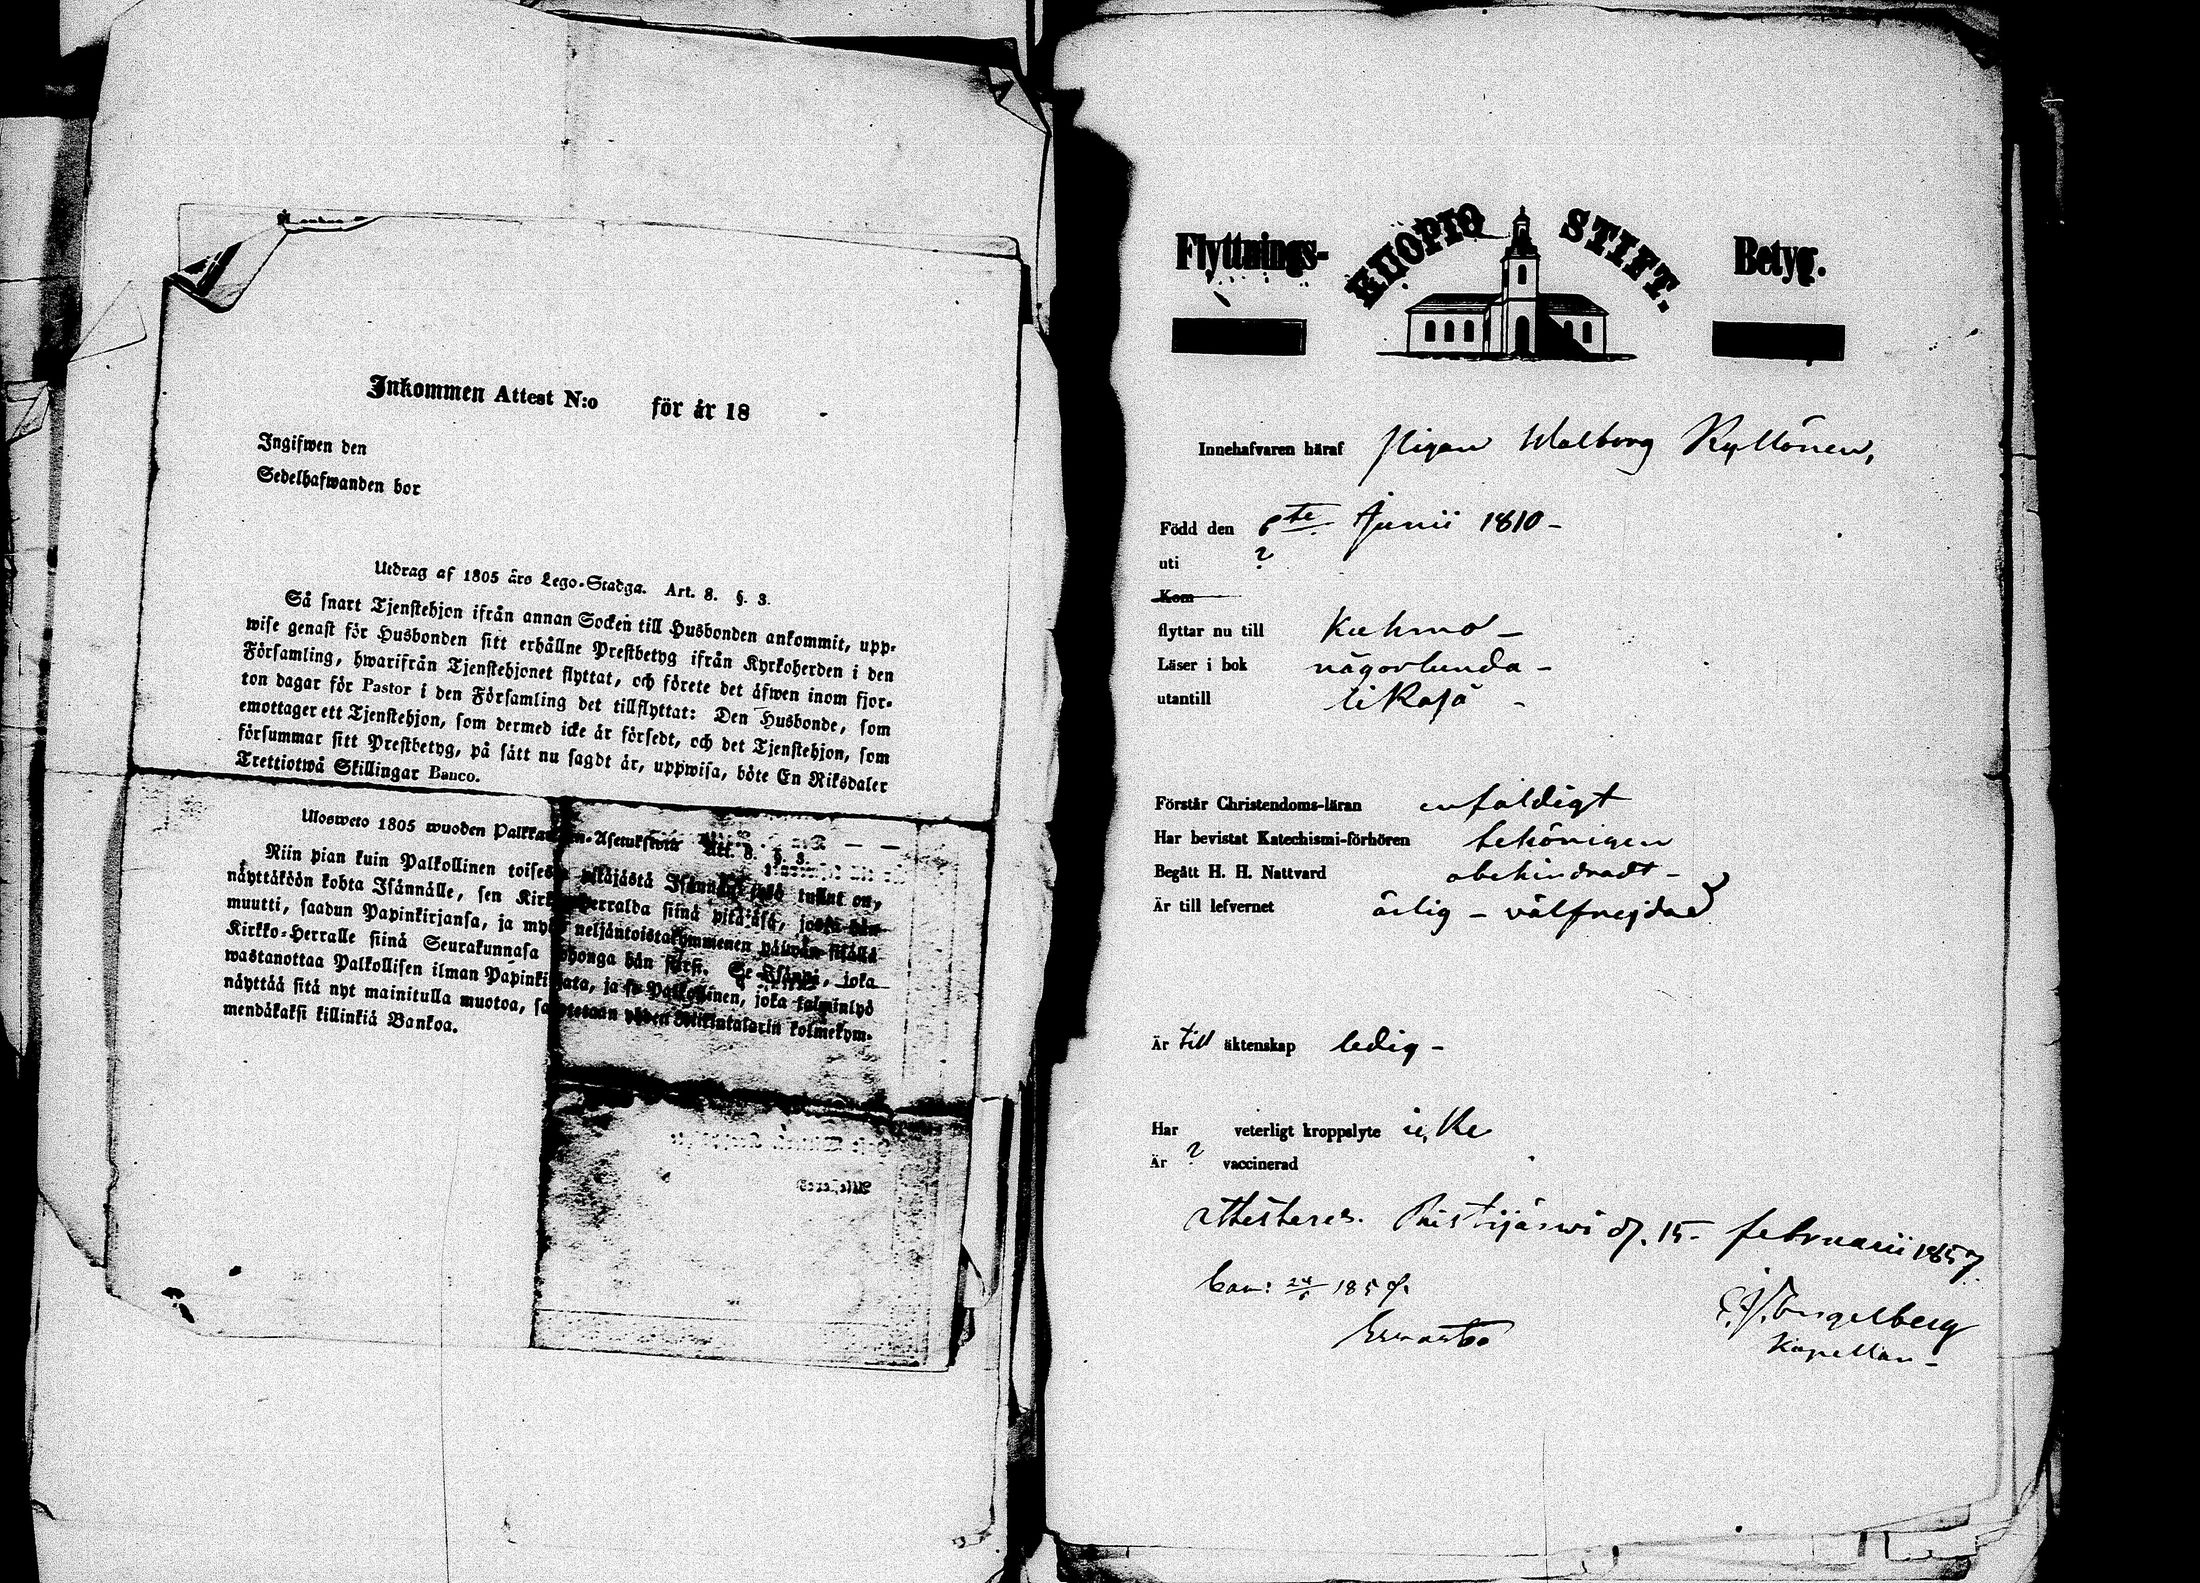 Inkommen Attest N:o för år 18
Ingifwen den
Sedelhafwanden bor
Utdrag af 1805 års Lego-Stadga. Art. 8. §. 3.
Så snart Tjenstehjon ifrån annan Socken till Husbonden ankommit, upp-
wise genast för Husbonden sitt erhållne Prestbetyg ifrån Kyrkoherden i den
Församling, hwarifrån Tjenstehjonet flyttat, och förete det äfwen inom fjor-
ton dagar för Pastor i den Församling det tillflyttat: Den Husbonde, som
emottager ett Tjenstehjon, som dermed icke är försedt, och det Tjenstehjon, som
försummar sitt Prestbetyg, på sätt nu sagdt är, uppwisa, böte En Riksdaler
Trettiotwå Skillingar Banco.
Ulosweto 1805 wuoden Art. 8. §. 3.
Niin pian kuin Palkollinen tullut on,
näyttäköön kohta Isännälle, sen siinä pitäjäsä, josta hän
muutti, saadun Papinkirjansa, ja myös neljäntoistakymmenen päiwän sisällä
Kirkko-Herralle siinä Seurakunnasa hän siirsi. Se Isäntä, joka
wastanottaa Palkollisen ilman Papinkirjata, ja se Palkollinen, joka laiminlyö
näyttää sitä nyt mainitulla muotoa, yhden Riikintalarin kolmekym-
mendäkaksi killinkiä Bankoa.
Flyttnings- KUOPIO STIFT. Betyg.
Innehafvaren häraf Pigan Walborg Kyllönen,
Född den 6te Junii 1810 -
uti ?
Kom
flyttar nu till Kuhmo -
Läser i bok någorlunda -
utantill likaså -
Förstår Christendoms-läran enfaldigt
Har bevistat Katechismi-förhören behörigen
Begått H. H. Nattvard obehindradt -
Är till lefvernet ärlig - välfrejdad
Är till äktenskap ledig -
Har veterligt kroppslyte icke
Är ? vaccinerad
Attesteres. Ristijärwi d. 15 - februarii 1857
1857.
E. J. Engelberg
Kapellan -